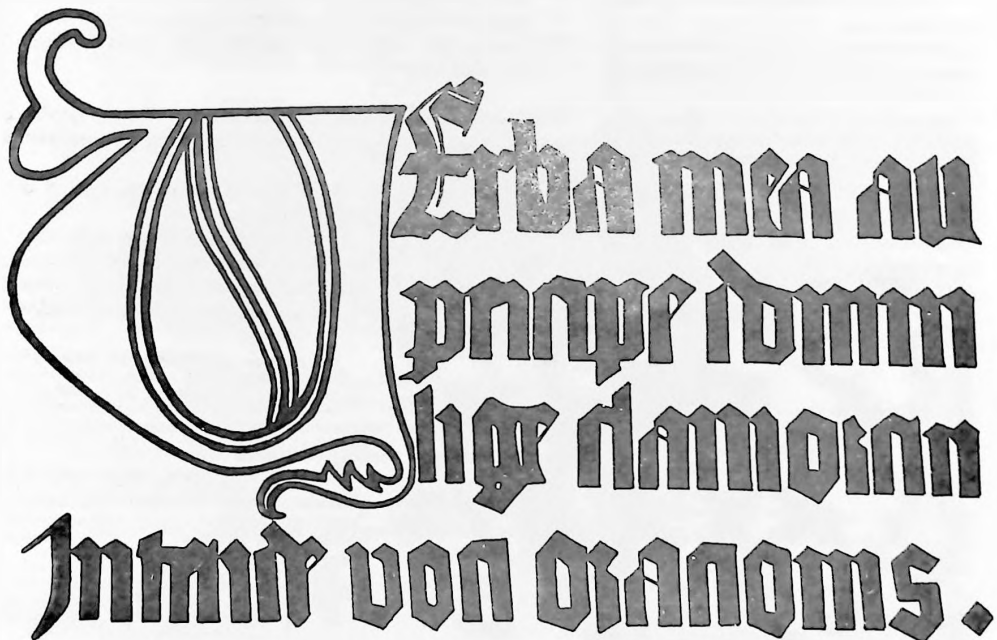 VErba mea au
percipe
lige clamorem
Intende voci orationis.